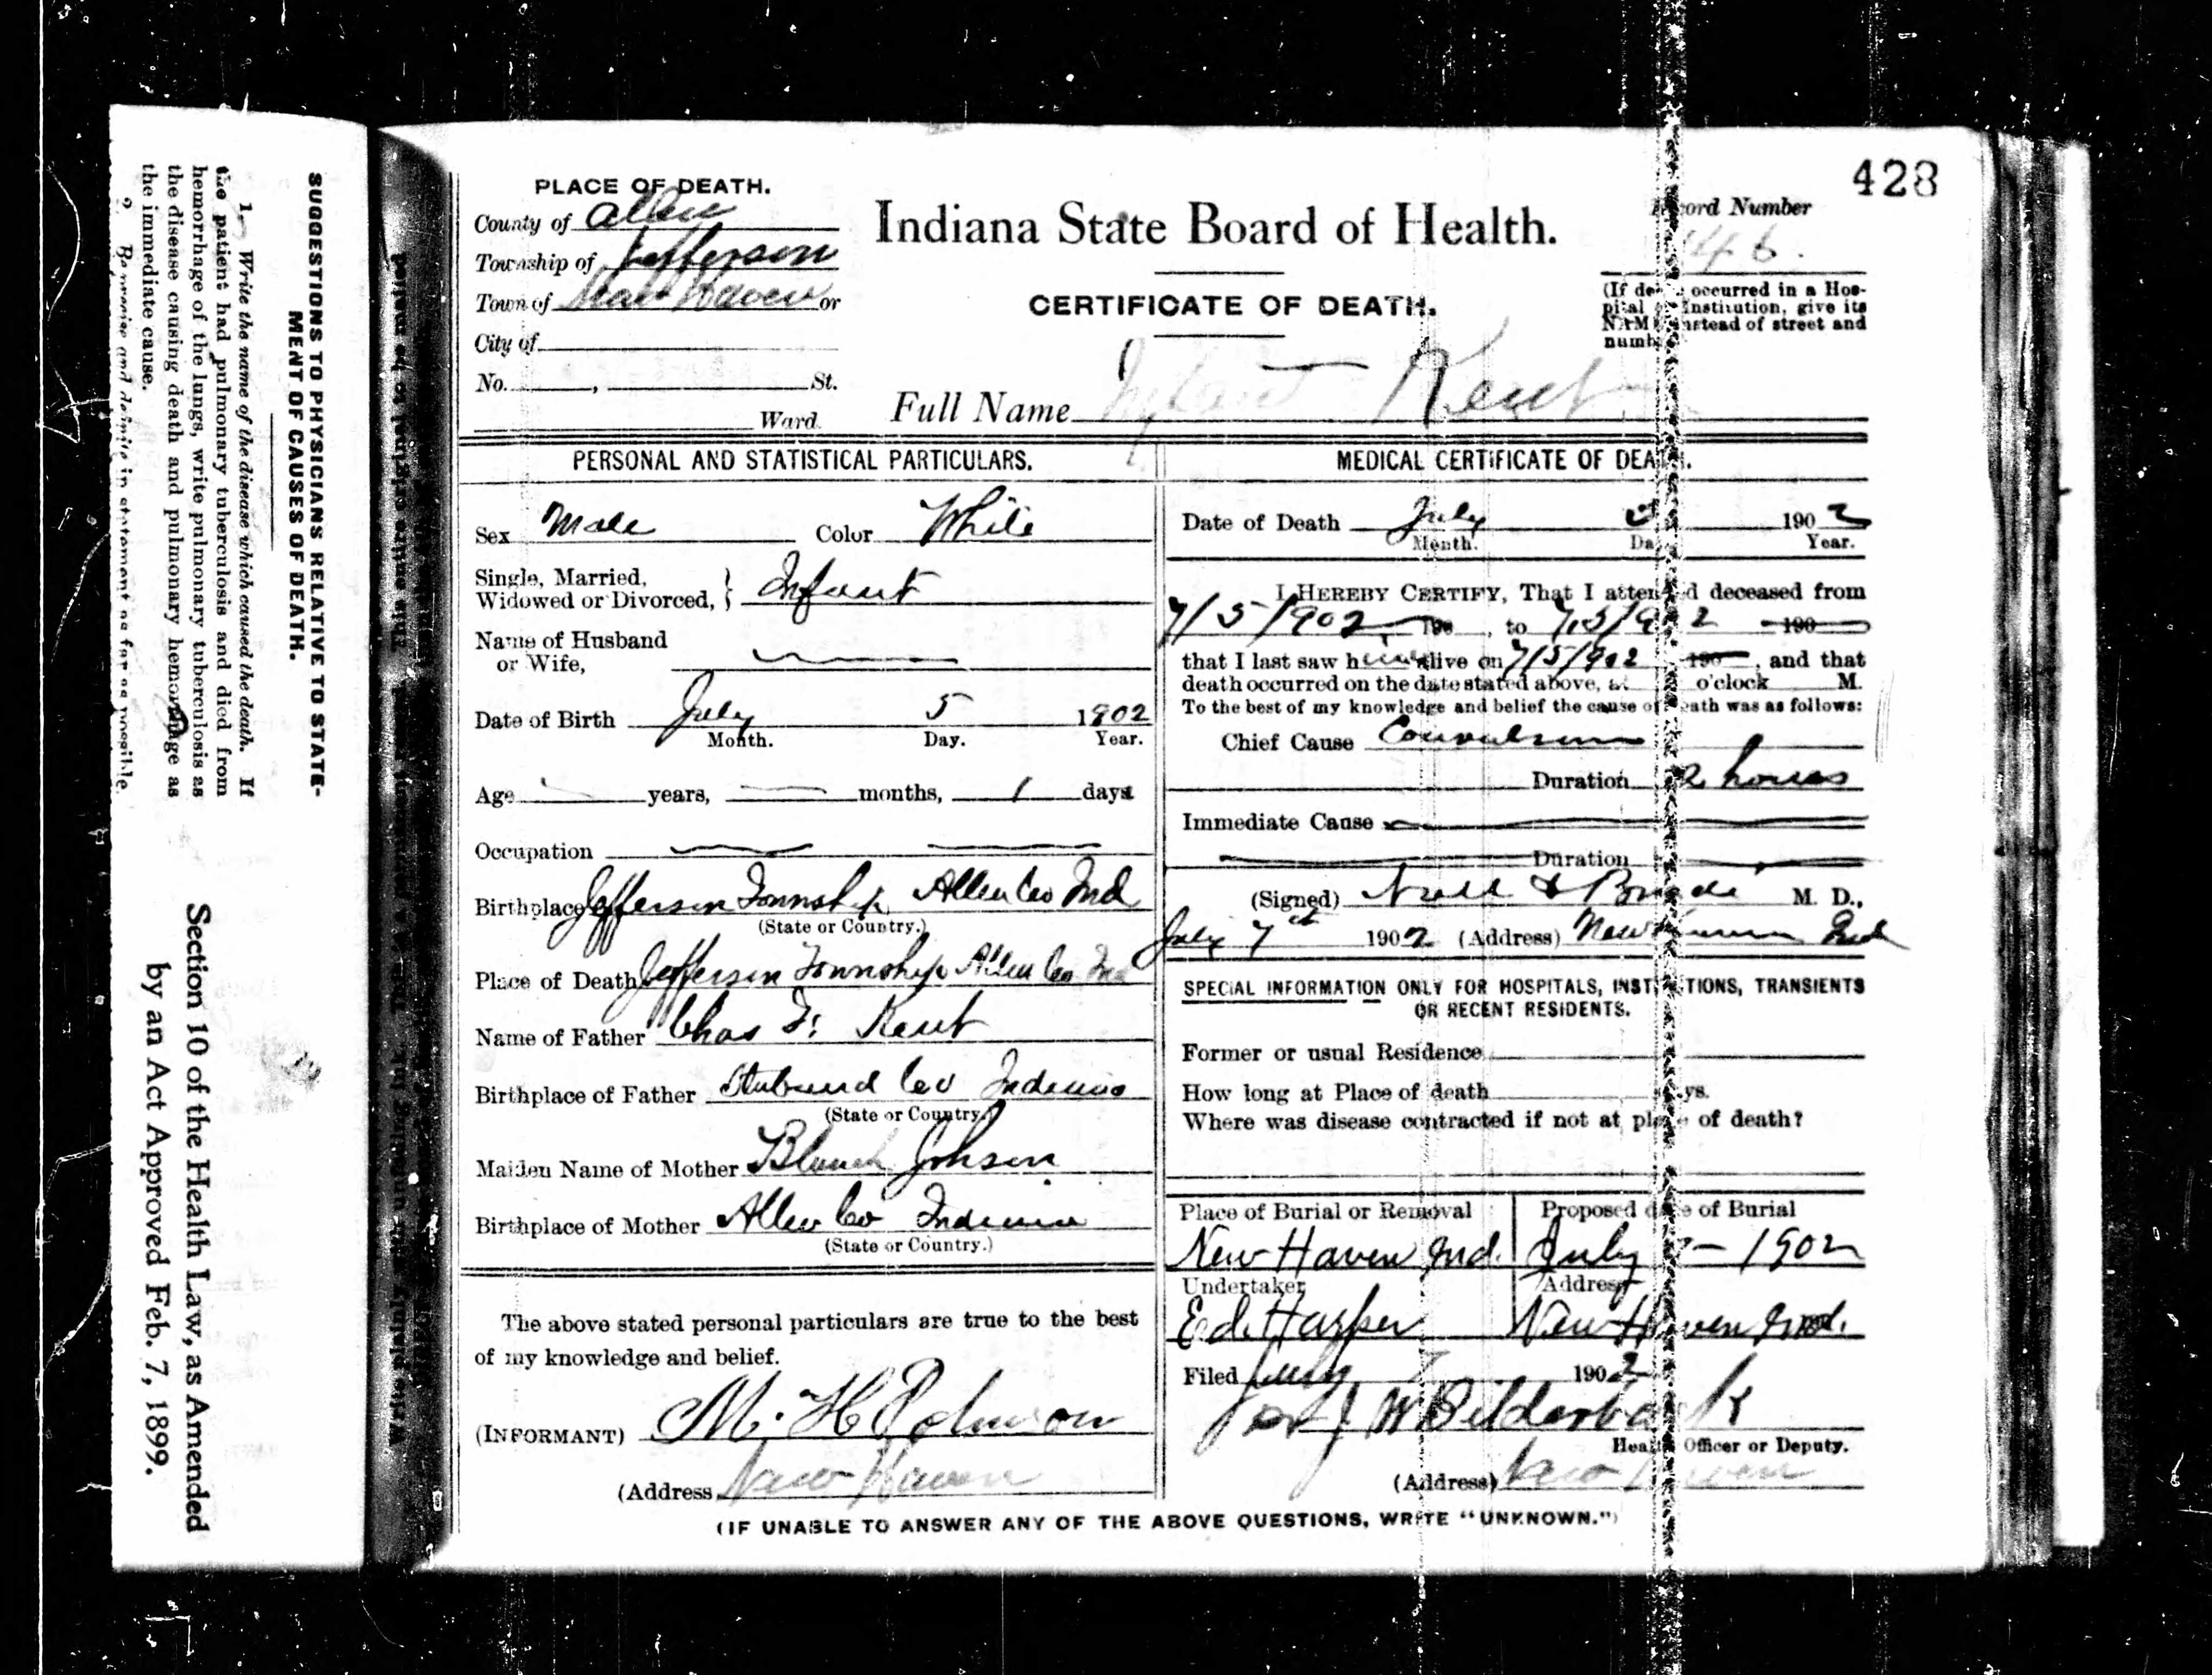 428
PLACE OF DEATH.
County of Allen
Township of Jefferson
Town of New Haven or
City of
No. , St.
Ward.
Indiana State Board of Health.
CERTIFICATE OF DEATH.
Record Number
46.
(If death occurred in a Hos-
pital or Institution, give its
NAME instead of street and
number
Full Name Infant Kent
PERSONAL AND STATISTICAL PARTICULARS.
Sex Male Color White
Single, Married,
Widowed or Divorced, } Infant
Name of Husband
or Wife,
Date of Birth July 5 1902
Month. Day. Year.
Age years, months, 1 days
Occupation
Birthplace Jefferson Township Allen Co Ind
(State or Country.)
Place of Death Jefferson Township Allen Co Ind
Name of Father Chas F. Kent
Birthplace of Father Co Indiana
(State or Country.)
Maiden Name of Mother Blanch Johson
Birthplace of Mother Allen Co Indiana
(State or Country.)
The above stated personal particulars are true to the best
of my knowledge and belief.
(INFORMANT) M. H.
(Address New Haven
MEDICAL CERTIFICATE OF DEATH.
Date of Death July 5 1902
Month. Day Year.
I HEREBY CERTIFY, That I attended deceased from
7/5/902 190 , to 7/5/902 190
that I last saw him alive on 7/5/902 190 , and that
death occurred on the date stated above, at o'clock M.
To the best of my knowledge and belief the cause of death was as follows:
Chief Cause Convulsions
Duration 2 hours
Immediate Cause
Duration
(Signed) M. D.,
July 7th 1902 (Address) New Haven Ind
SPECIAL INFORMATION ONLY FOR HOSPITALS, INSTITUTIONS, TRANSIENTS
OR RECENT RESIDENTS.
Former or usual Residence
How long at Place of death days.
Where was disease contracted if not at place of death?
Place of Burial or Removal Proposed date of Burial
New Haven Ind. July - 1902
Undertaker Address
Ed. Harper New Haven Ind.
Filed July 7 1902
J W Bilderback
Health Officer or Deputy.
(Address) New Haven
(IF UNABLE TO ANSWER ANY OF THE ABOVE QUESTIONS, WRITE "UNKNOWN.")
SUGGESTIONS TO PHYSICIANS RELATIVE TO STATE-
MENT OF CAUSES OF DEATH.
1. Write the name of the disease which caused the death. If
the patient had pulmonary tuberculosis and died from
hemorrhage of the lungs, write pulmonary tuberculosis as
the disease causing death and pulmonary hemorrhage as
the immediate cause.
2. Be precise and definite in statement as far as possible.
Section 10 of the Health Law, as Amended
by an Act Approved Feb. 7, 1899.